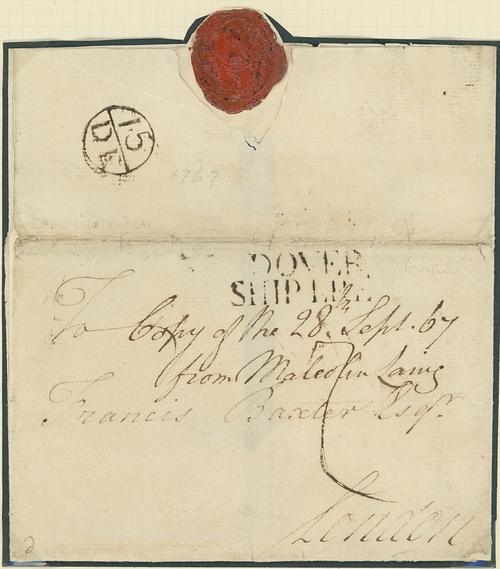 15
DE
1767
DOVER
SHIP LRE
To Copy of the 28.th Sept. 67
from Malcolm Laing
Francis Baxter Esqr.
London